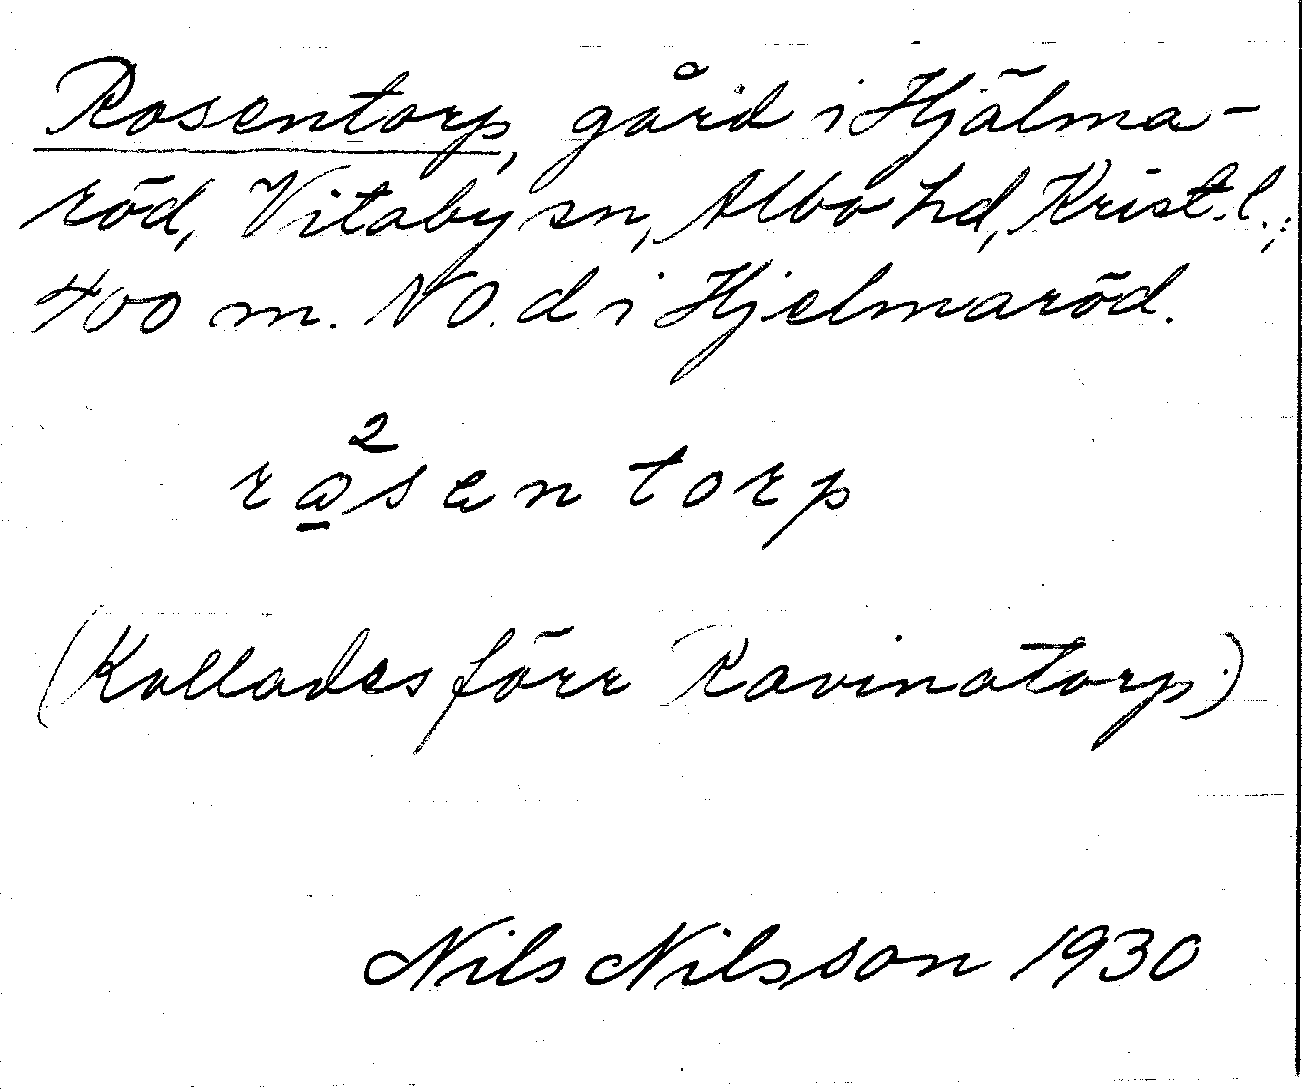 Rosentorp, gård i Hjälma-
röd, Vitaby sn, Albo hd, Krist. l.;
400 m. NO. d i Hjelmaröd.
2
råsentorp
(Kallades förr Ravinatorp.)
Nils Nilsson 1930